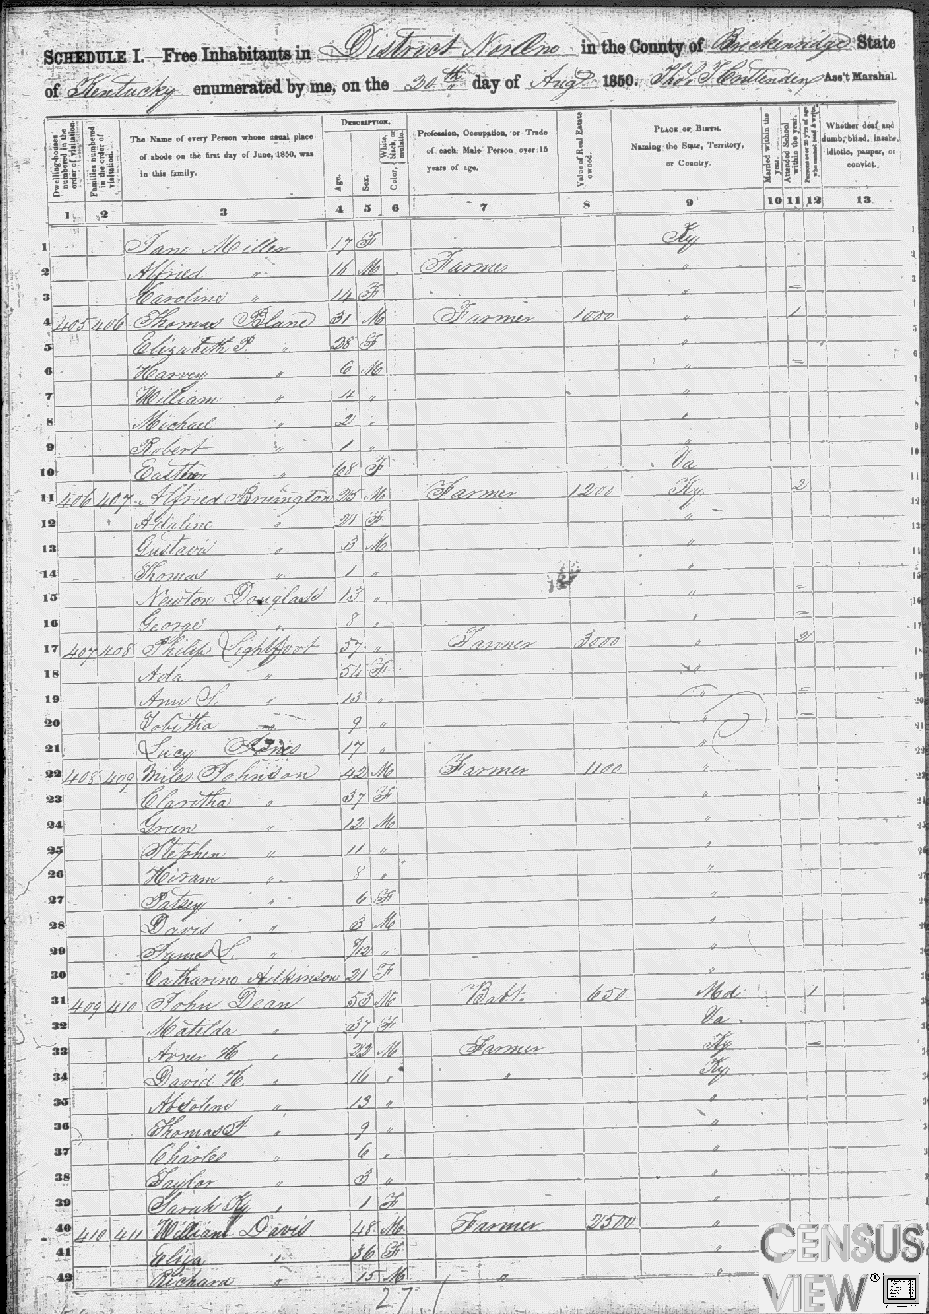 SCHEDULE I.—Free Inhabitants in District No One in the County of Breckenridge State
of Kentucky enumerated by me, on the 20th day of Augt 1850. Ass't Marshal.
Dwelling-houses numbered in the order of visitation.
Families numbered in the order of visitation.
The Name of every Person whose usual place of abode on the first day of June, 1850, was in this family.
DESCRIPTION.
Age.
Sex.
Color, White, black, or mulatto.
Profession, Occupation, or Trade of each Male Person over 15 years of age.
Value of Real Estate owned.
PLACE OF BIRTH. Naming the State, Territory, or Country.
Married within the year.
Attended School within the year.
Persons over 20 y'rs of age who cannot read & write.
Whether deaf and dumb, blind, insane, idiotic, pauper, or convict.
1 2 3 4 5 6 7 8 9 10 11 12 13
1 Jane Miller 17 F Ky
2 Alfred " 16 M Farmer "
3 Caroline " 14 F "
4 405 406 Thomas Blane 31 M Farmer 1000 " 1
5 Elizabeth P. " 28 F "
6 Harvey " 6 M "
7 William " 4 " "
8 Michael " 2 " "
9 Robert " 1 " "
10 " 68 F Va
11 406 407 Alfred 25 M Farmer 1200 Ky 2
12 Adaline " 21 F "
13 Gustavis " 3 M "
14 Thomas " 1 " "
15 Newton Douglass 13 " "
16 George " 8 " "
17 407 408 Philip Lightfoot 57 " Farmer 3000 " 2
18 Ada " 54 F "
19 Ann S. " 13 " "
20 Tobitha " 9 " "
21 Lucy 17 " "
22 408 409 Miles Johnson 42 M Farmer 1100 "
23 Claritha " 37 F "
24 Green " 12 M "
25 Stephen " 11 " "
26 Hiram " 8 " "
27 Patsey " 6 F "
28 Davis " 3 M "
29 James L. " "
30 Catharine Adkinson 21 F "
31 409 410 John Dean 53 M Bapt. 650 Md 1
32 Matilda " 37 F Va
33 Abner H " 22 M Farmer Ky
34 David H " 16 " " Ky
35 Absolem " 13 " "
36 Thomas F " 9 " "
37 Charles " 6 " "
38 Taylor " 3 " "
39 Sarah Ky " 1 F "
40 410 411 William Davis 48 M Farmer 2500 "
41 Eliza " 36 F "
42 Richard " 15 M "
27
CENSUS
VIEW®